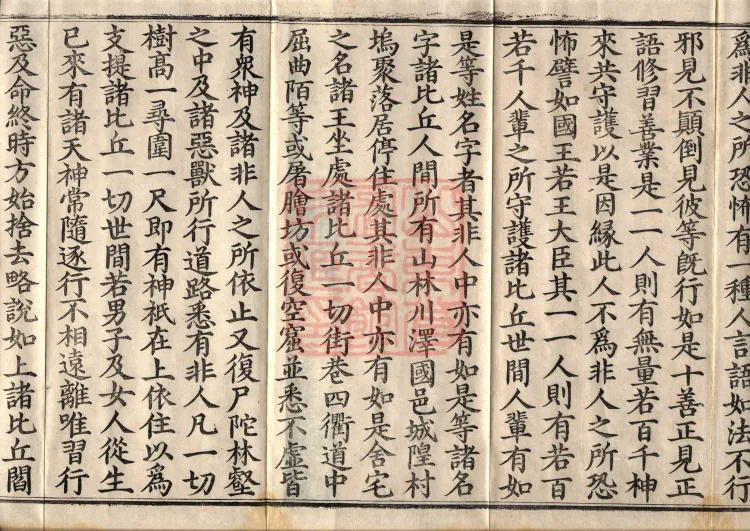 為非人之所恐怖有一種人言語如法不行
邪見不顛倒見彼等旣行如是十善正見正
語修習善業是一一人則有無量若百千神
來共守護以是因緣此人不為非人之所恐
怖譬如國王若王大臣其一一人則有若百
若千人輩之所守護諸比丘世間人輩有如
是等姓名字者其非人中亦有如是等諸名
字諸比丘人間所有山林川澤國邑城隍村
塢聚落居停住處其非人中亦有如是舍宅
之名諸王坐處諸比丘一切街巷四衢道中
屈曲陌等或屠膾坊或復空窟並悉不虛皆
有衆神及諸非人之所依止又復尸陀林壑
之中及諸惡獸所行道路悉有非人凡一切
樹髙一尋圍一尺即有神祇在上依住以為
支提諸比丘一切世間若男子及女人從生
已來有諸天神常隨逐行不相遠離唯習行
惡及命終時方始捨去略說如上諸比丘閻